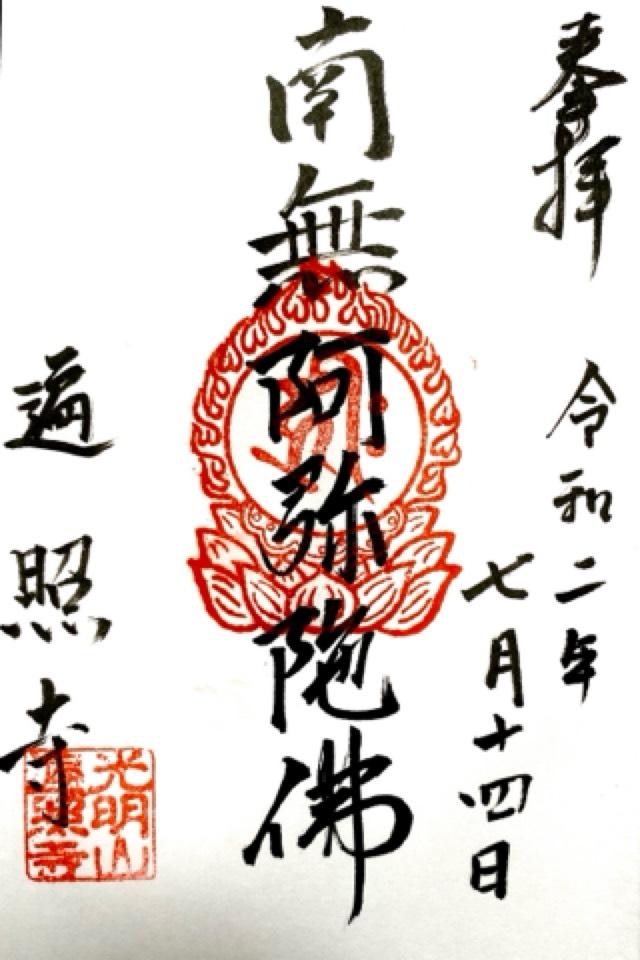 奉拝
令和二年
七月十四日
南無阿弥陀佛
遍照寺
光明山
遍照寺